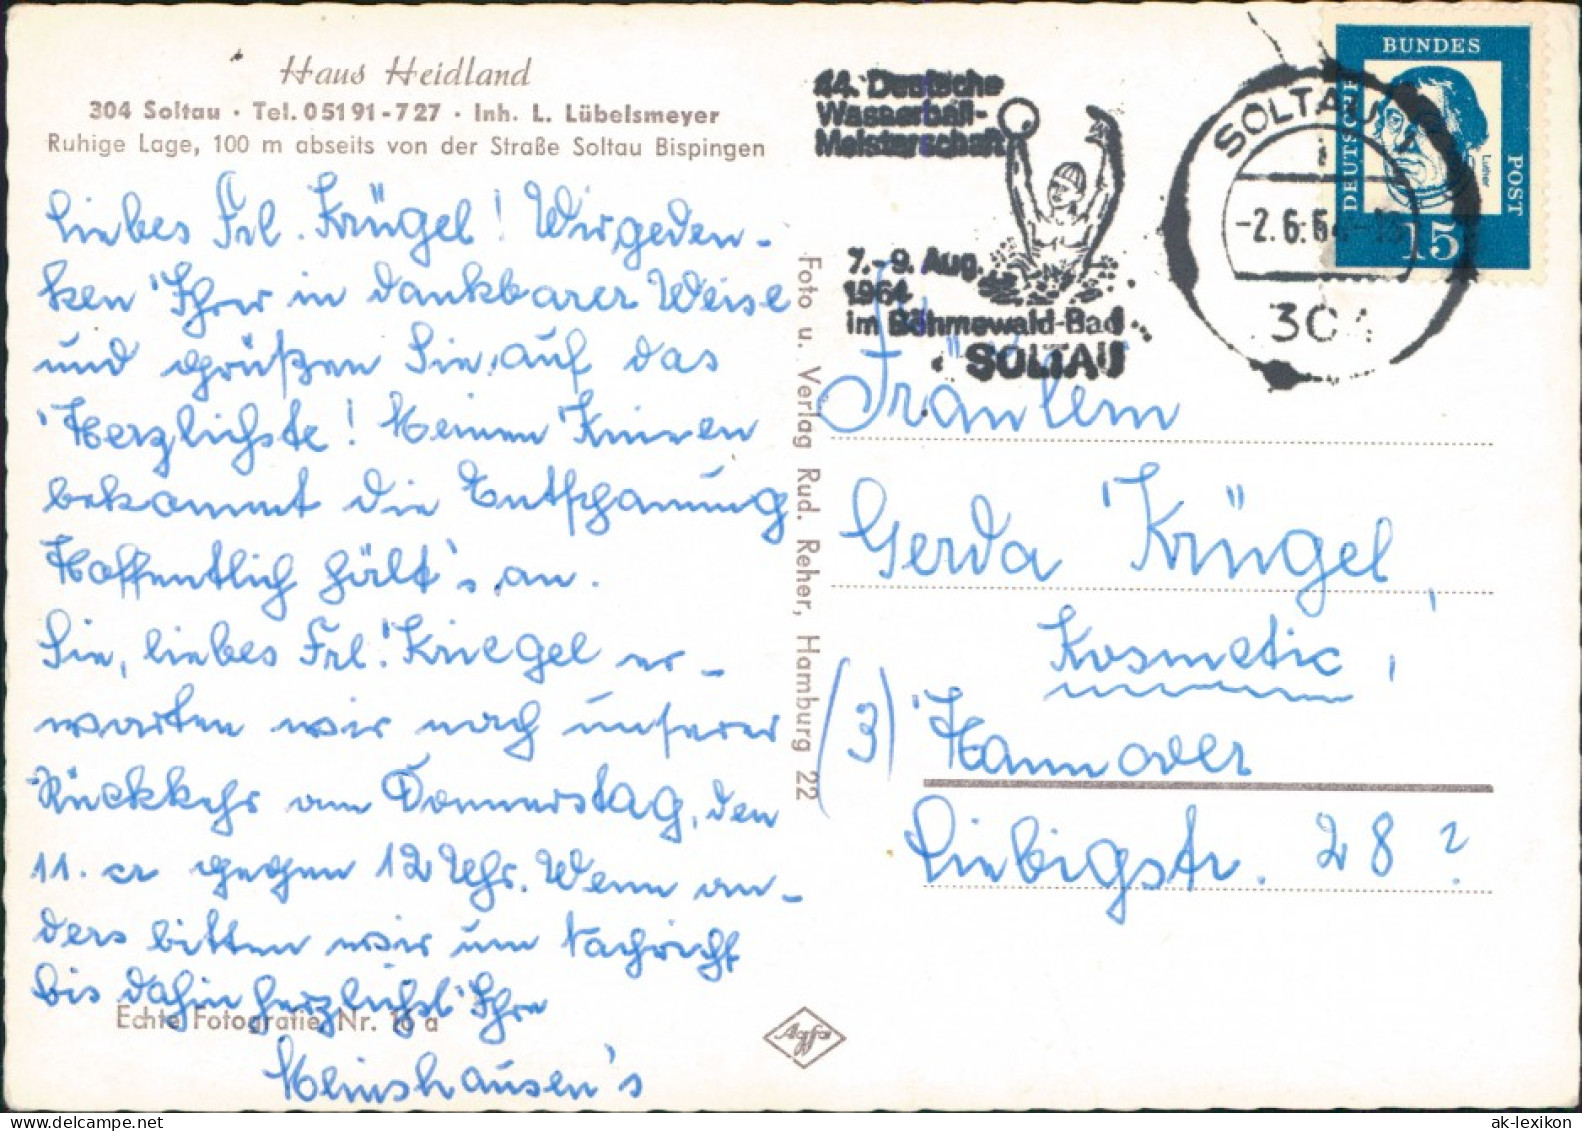 Haus Heidland
304 Soltau · Tel. 05191-727 · Inh. L. Lübelsmeyer
Ruhige Lage, 100 m abseits von der Straße Soltau Bispingen
Liebes Frl. Krügel! Wir geden-
ken Ihrer in dankbarer Weise
und grüßen Sie auf das
Herzlichste! Meinen Knieen
bekommt die Entspannung
Hoffentlich hält's an.
Sie, liebes Frl. Kriegel er-
warten wir nach unserer
Rückkehr am Donnerstag, den
11. cr gegen 12 Uhr. Wenn an-
ders bitten wir um Nachricht
bis dahin herzlichst Ihre
Meinshausen's
Echte Fotografie Nr. 16 a
Foto u. Verlag Rud. Reher, Hamburg 22
44. Deutsche
Wasserball-
Meisterschaft
7.-9. Aug.
1964
im Böhmewald-Bad
SOLTAU
SOLTAU
-2.6.64-
304
DEUTSCHE
BUNDES
POST
Luther
15
Fräulein
Gerda Krügel,
Kosmetic,
(3) Hannover
Liebigstr. 28?
Agfa
ak-lexikon.de